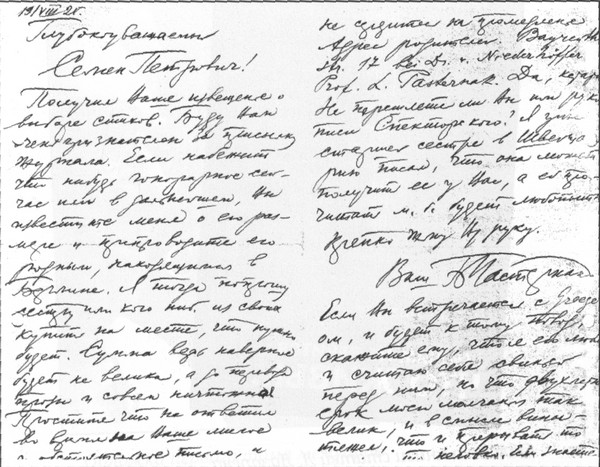 19/VIII 2
Глубокоуважаемый
Семен Петрович!
Получил Ваше извещение о
выборе стихов. Буду Вам
очень признателен за присылку
журнала. Если набежит
что нибудь гонорарное сей-
час или в дальнейшем, Вы
известите меня о его раз-
мере и препроводите его
родным, находящимся в
Берлине. Я тогда попрошу
сестру или кого ниб. из своих
купить на месте, что нужно
будет. Сумма ведь наверное
будет не велика, а до перевода
и совсем ничтожна
Простите что не ответил
во время на Ваше милое
и обстоятельное письмо, и
не сердитесь на промедление
Адрес родителей. Bayreuther
Str. 17 bei Dr. v. Niederhöffer
Prof. L. Pasternak. Да, кстати
Не перешлете ли Вы им руко-
писи Спекторского? Я
старшей сестре в
писал, что она может
получить ее у Вас, а ей про-
читать м. б. будет любопытно
Крепко жму Вашу руку.
Ваш БПастернак
Если Вы встречаетесь с
ом, и будет к тому повод,
скажите ему, что я его люблю
и считаю себя свиньей
перед ним, но что двухлетн
срок моего молчанья так
велик, и я слишком вино-
что и прерывать